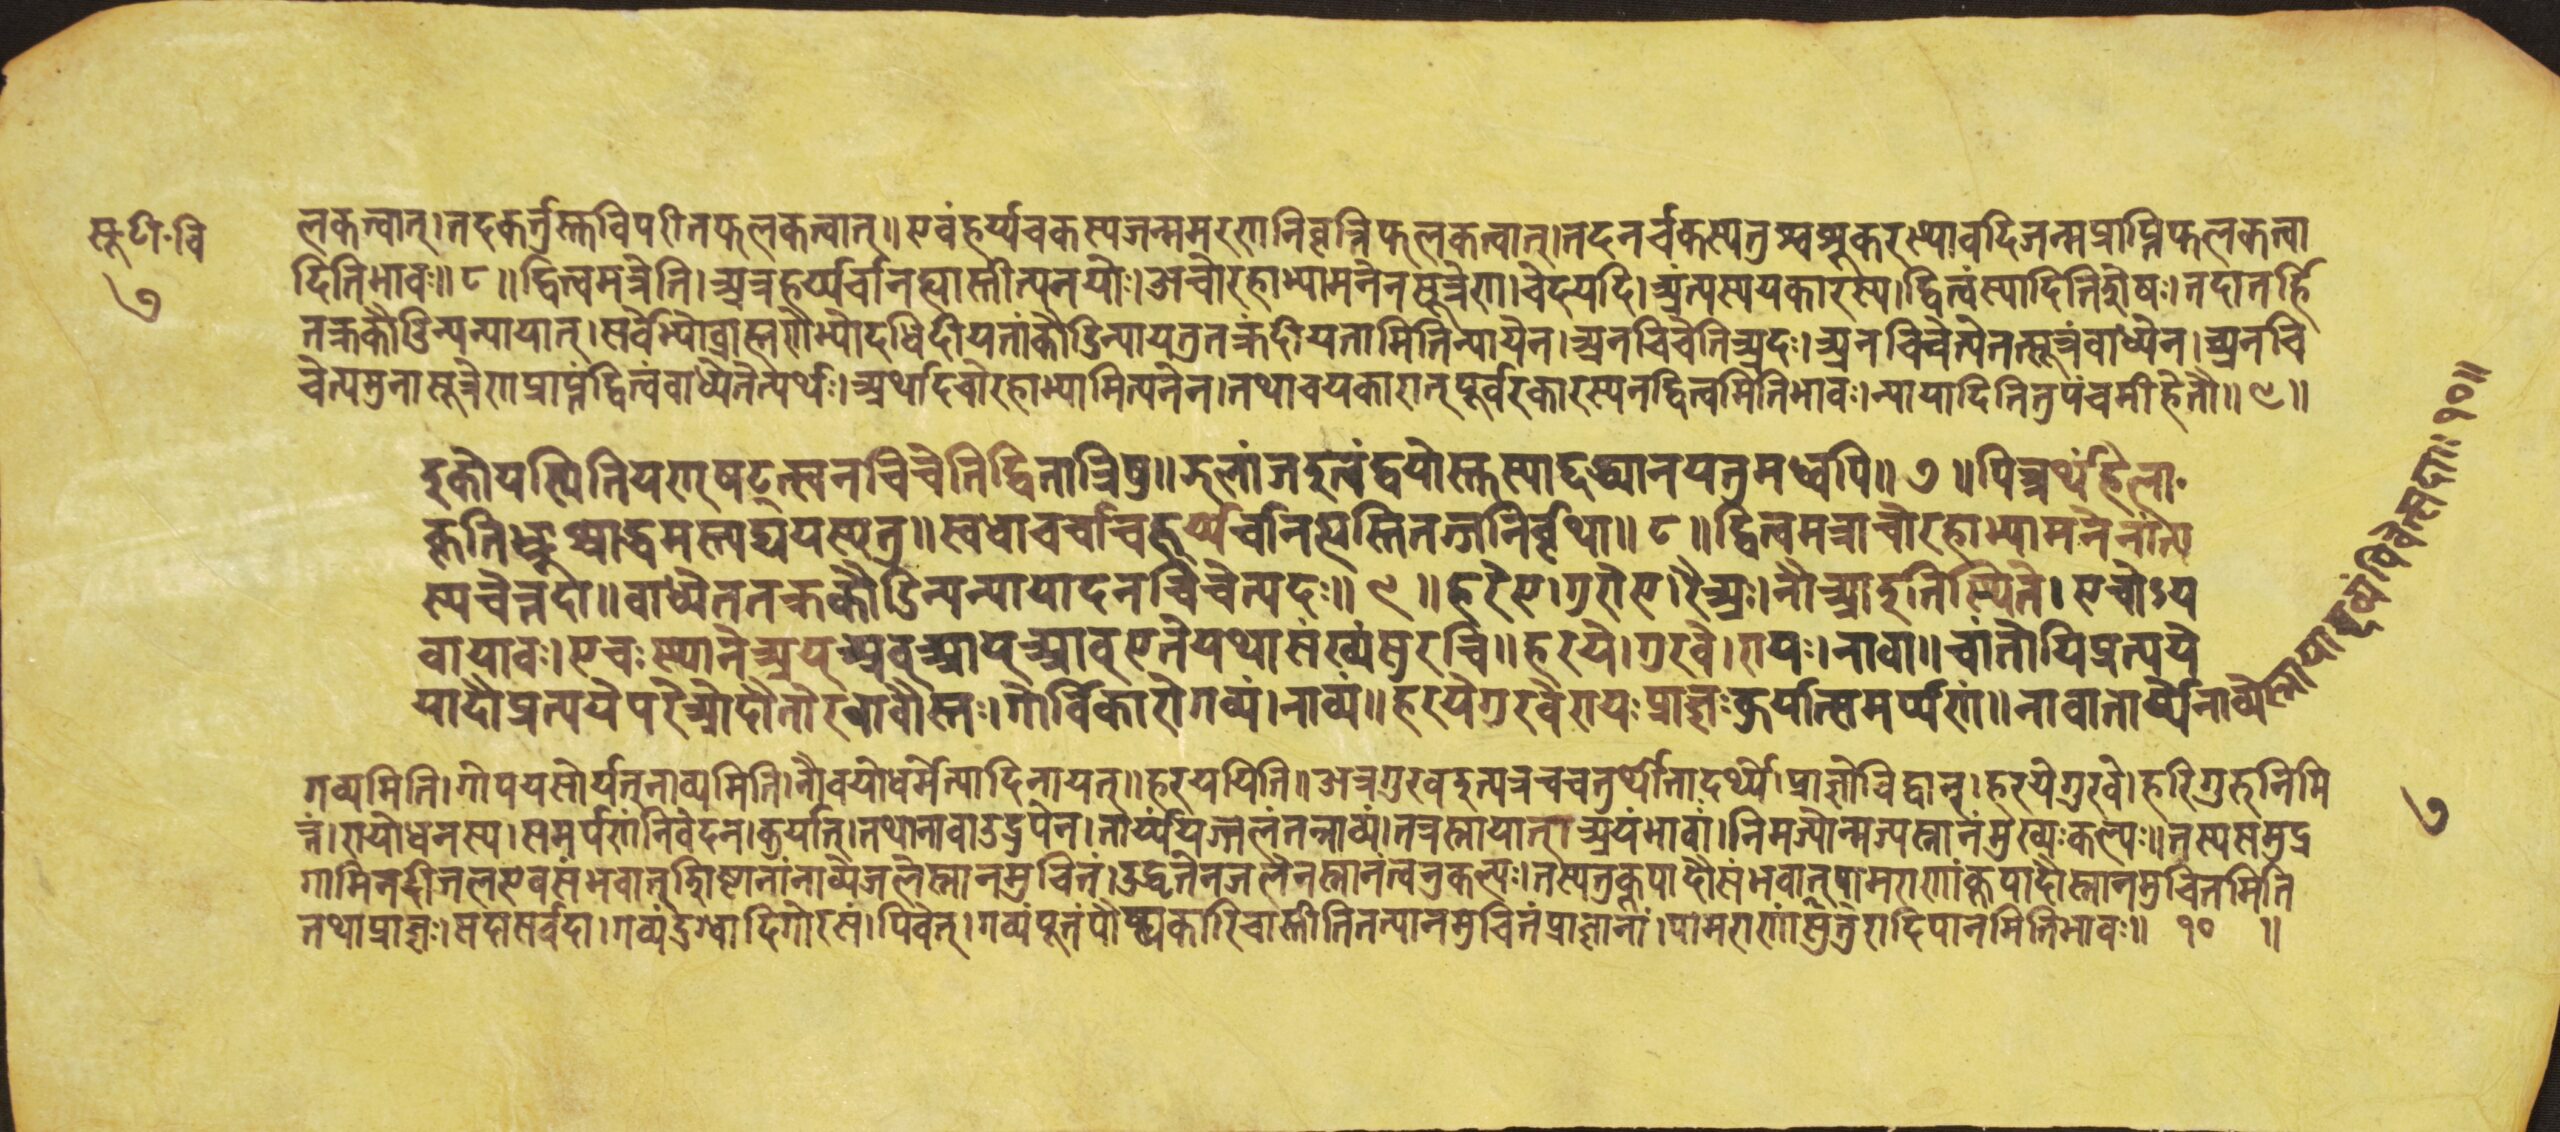 सू॰टी॰वि
७
लकत्वात्।तदकर्तुस्तविपरीतफलकत्वात्॥एवंहर्य्यचकस्यजन्ममरणनिवृत्तिफलकत्वात्।तदनर्चकस्यतुश्वशूकरस्यावदिजन्मप्राप्तिफलकत्वा
दितिभावः॥८॥द्वित्वमत्रेति।अत्रहर्य्यर्चानह्यास्तीत्यनयोः।अचोरहाभ्यामनेनसूत्रेण।चेद्यदि।अंत्यस्ययकारस्य।द्वित्वंस्यादितिशेषः।तदातर्हि
तक्रकौंडिन्यन्यायात्।सर्वेभ्योब्राह्मणेभ्योदधिदीयतांकौंडिन्यायतुतक्रंदीयतामितिन्यायेन।अनचिचेतिअदः।अनचिचेत्येतत्सूत्रंवाध्येत।अनचि
चेत्यमुनासूत्रेणप्राप्तंद्वित्वंवाध्येतेत्यर्थः।अर्थादचोरहाभ्यामित्यनेन।तथाचयकारात्पूर्वरकारस्यनद्वित्वमितिभावः।न्यायादितितुपंचमीहेतौ॥९॥
दुकोयस्पितियणःषट्त्स्वनचिचेतिद्वितात्रिषु॥झलांजशूत्वंद्वयोस्तस्याद्दध्यानयतुमध्वपि॥७॥पित्रर्थंहिला
कृतिःकुश्राद्धमस्त्यद्ययस्यतु॥स्वधाचर्चाचहर्य्यर्चानह्यस्तितज्जनिर्वृथा॥८॥द्वित्वमत्राचोरहाभ्यामनेनांत्य
स्यचेत्तदा॥वाध्येततक्रकौंडिन्यन्यायादनचिचेत्यदः॥९॥हरेए।गुरोए।रैअः।नौआइतिस्थिते।एचोऽय
वायावः।एचःस्थानेअय्अव्आय्आव्एतेयथासंख्यंस्युरचि॥हरये।गुरवे।रायः।नावा॥वांतोयिप्रत्यये
यादौप्रत्ययेपरेओदौतोरवावौस्तः।गोर्विकारोगव्यं।नाव्यं॥हरयेगुरवेरायःप्राज्ञःकुर्यात्समर्प्पणं॥नावातार्य्येनाव्ये
॥१०॥
गव्यमिति।गोपयसोर्यत्नाव्यमिति।नौवयोधर्मेत्यादिनायत्॥हरययिति॥अत्रगुरवइत्यत्रचचतुर्थीतादर्थ्ये।प्राज्ञोविद्वान्।हरयेगुरवे।हरिगुरुनिमि
त्तं।रायोधनस्य।समर्पणंनिवेदन।कुर्यात्।तथानावाउडुपेन।तार्य्यंयज्जलंतन्नाव्यं।तत्रस्नायात्।अयंभावः।निमज्योन्मज्यस्नानंमुख्यःकल्पः॥तस्यसमुद्र
गामिनदीजलएवसंभवात्शिष्टानांनाव्येजलेस्नानमुचितं।उद्धृतेनजलेनस्नानंत्वनुकल्पः।तस्यतुकूपादौसंभवात्पामराणांकूपादौस्नानमुचितमिति
तथाप्राज्ञः।सदासर्वदा।गव्यंदुग्धादिगोरसं।पिबेत्।गव्यंपूतंपौष्ट्यकारिचास्तीतितत्पानमुचितंप्राज्ञानां।पामराणांसुतुरादिपानमितिभावः॥१०॥
७